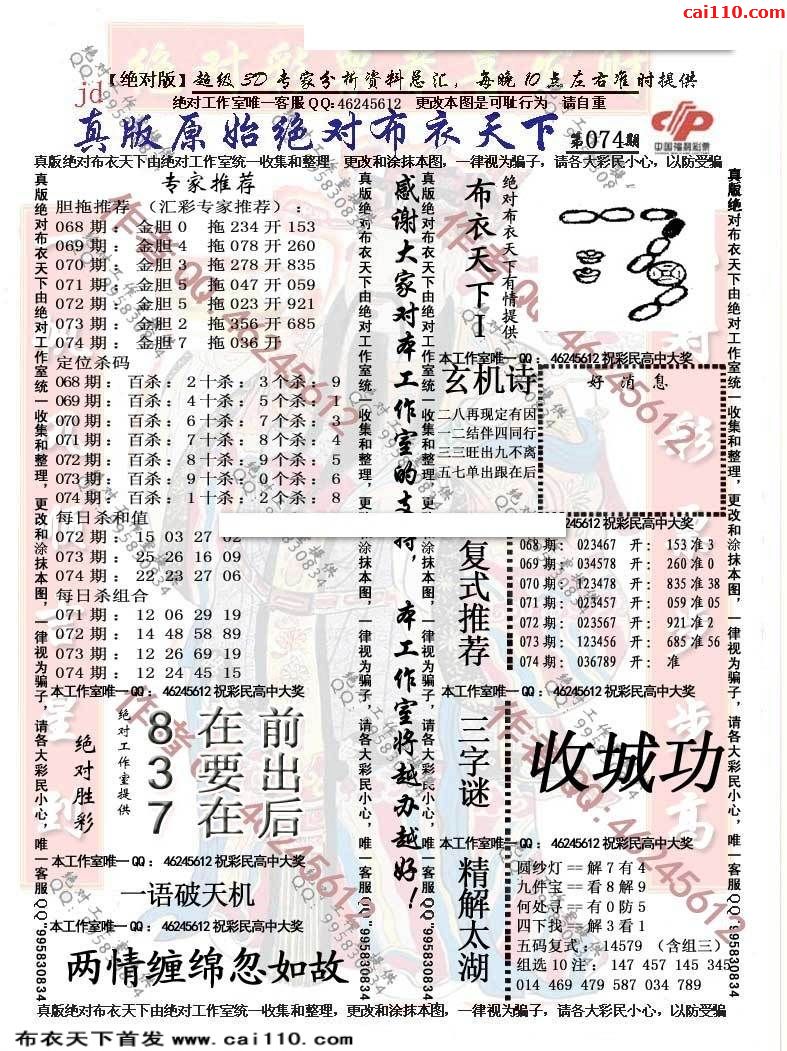 cai110.com
【绝对版】超级3D专家分析资料总汇，每晚10点左右准时提供
jd
绝对工作室唯一客服QQ:46245612 更改本图是可耻行为 请自重
真版原始绝对布衣天下 第074期
中国福利彩票
真版绝对布衣天下由绝对工作室统一收集和整理，更改和涂抹本图，一律视为骗子，请各大彩民小心，以防受骗
真版绝对布衣天下由绝对工作室统一收集和整理，更改和涂抹本图，一律视为骗子，请各大彩民小心，唯一客服QQ:995830834
专家推荐
胆拖推荐 （汇彩专家推荐）：
068期：金胆0 拖234开153
069期：金胆4 拖078开260
070期：金胆3 拖278开835
071期：金胆5 拖047开059
072期：金胆5 拖023开921
073期：金胆2 拖356开685
074期：金胆7 拖036开
定位杀码
068期：百杀：2十杀：3个杀：9
069期：百杀：4十杀：5个杀：1
070期：百杀：6十杀：7个杀：3
071期：百杀：7十杀：8个杀：4
072期：百杀：8十杀：9个杀：5
073期：百杀：9十杀：0个杀：6
074期：百杀：1十杀：2个杀：8
每日杀和值
072期：15 03 27 02
073期：25 26 16 09
074期：22 23 27 06
每日杀组合
071期：12 06 29 19
072期：14 48 58 89
073期：12 26 69 19
074期：12 24 45 15
本工作室唯一QQ：46245612祝彩民高中大奖
绝对胜彩
绝对工作室提供
8在前
3要出
7在后
本工作室唯一QQ：46245612祝彩民高中大奖
一语破天机
本工作室唯一QQ：46245612祝彩民高中大奖
两情缠绵忽如故
真版绝对布衣天下由绝对工作室统一收集和整理，更改和涂抹本图，一律视为骗子，请各大彩民小心，唯一客服QQ:995830834
感谢大家对本工作室的支持，本工作室将越办越好！
真版绝对布衣天下由绝对工作室统一收集和整理，更改和涂抹本图，一律视为骗子，请各大彩民小心，唯一客服QQ:995830834
布衣天下I
绝对布衣天下有情提供
本工作室唯一QQ：46245612祝彩民高中大奖
玄机诗
二八再现定有因
一二结伴四同行
三三旺出九不离
五七单出跟在后
好消息
46245612祝彩民高中大奖
复式推荐
068期：023467 开：153准3
069期：034578 开：260准0
070期：123478 开：835准38
071期：023457 开：059准05
072期：023567 开：921准2
073期：123456 开：685准56
074期：036789 开： 准
本工作室唯一QQ：46245612祝彩民高中大奖
三字谜
收城功
本工作室唯一QQ：46245612祝彩民高中大奖
精解太湖
圆纱灯==解7有4
九件宝==看8解9
何处寻==有0防5
四下找==解3看1
五码复式：14579 （含组三）
组选10注：147 457 145 345
014 469 479 587 034 789
真版绝对布衣天下由绝对工作室统一收集和整理，更改和涂抹本图，一律视为骗子，请各大彩民小心，唯一客服QQ:995830834
真版绝对布衣天下由绝对工作室统一收集和整理，更改和涂抹本图，一律视为骗子，请各大彩民小心，以防受骗
布衣天下首发 www.cai110.com
作者QQ:46245612
绝对工作室提供
QQ:995830834